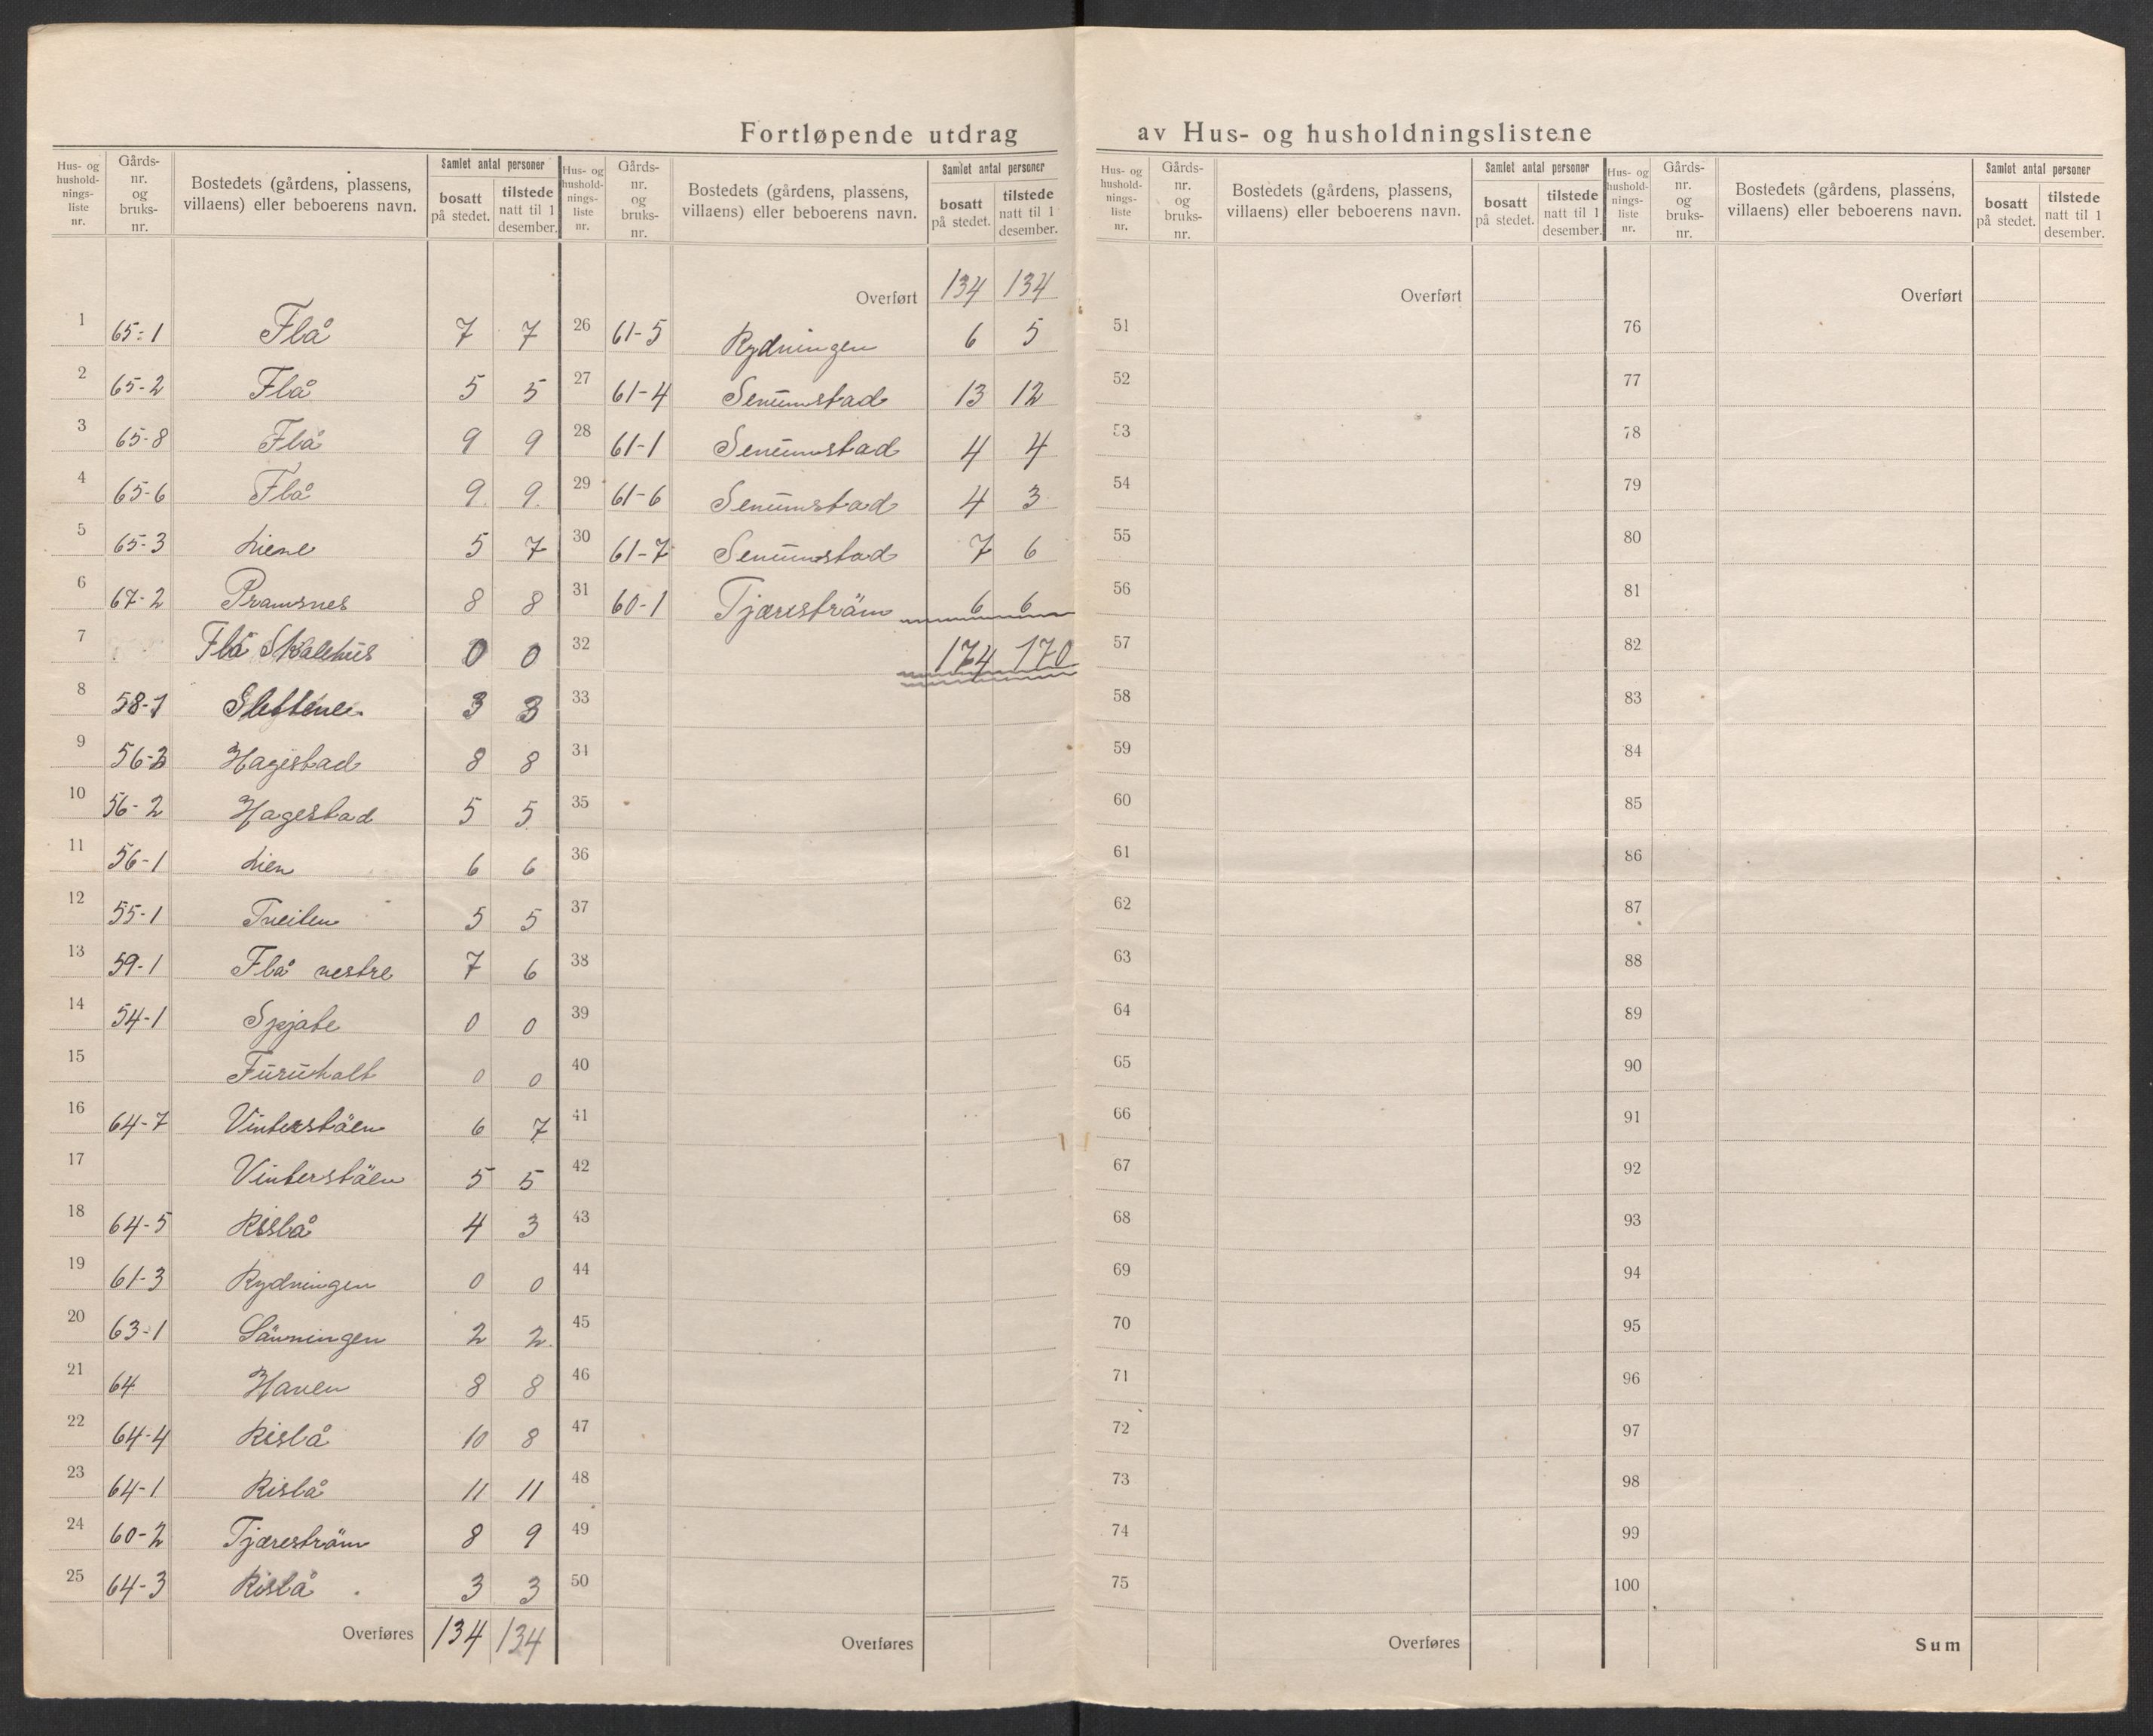 Fortløpende utdrag av Hus- og husholdningslistene
Hus- og hushold- nings- liste nr. | Gårds- nr. og bruks- nr. | Bostedets (gårdens, plassens, villaens) eller beboerens navn. | Samlet antal personer | bosatt på stedet. | tilstede natt til 1 desember.
1 65-1 Flå 7 7
2 65-2 Flå 5 5
3 65-8 Flå 9 9
4 65-6 Flå 9 9
5 65-3 Liene 5 7
6 67-2 Pramsnes 8 8
7 Flå Skolehus 0 0
8 58-1 Slettene 3 3
9 56-3 Hagestad 8 8
10 56-2 Hagestad 5 5
11 56-1 Lien 6 6
12 55-1 Tveiten 5 5
13 59-1 Flå vestre 7 6
14 54-1 Spjote 0 0
15 Furuholt 0 0
16 64-7 Vinterstöen 6 7
17 Vinterstöen 5 5
18 64-5 Rislå 4 3
19 61-3 Rydningen 0 0
20 63-1 Lauvningen 2 2
21 64 Haven 8 8
22 64-4 Rislå 10 8
23 64-1 Rislå 11 11
24 60-2 Tjæreström 8 9
25 64-3 Rislå 3 3
Overføres 134 134
Hus- og hushold- nings- liste nr. | Gårds- nr. og bruks- nr. | Bostedets (gårdens, plassens, villaens) eller beboerens navn. | Samlet antal personer | bosatt på stedet. | tilstede natt til 1 desember.
Overført 134 134
26 61-5 Rydningen 6 5
27 61-4 Senumstad 13 12
28 61-1 Senumstad 4 4
29 61-6 Senumstad 4 3
30 61-7 Senumstad 7 6
31 60-1 Tjæreström 6 6
32 174 170
33
34
35
36
37
38
39
40
41
42
43
44
45
46
47
48
49
50
Overføres
Hus- og hushold- nings- liste nr. | Gårds- nr. og bruks- nr. | Bostedets (gårdens, plassens, villaens) eller beboerens navn. | Samlet antal personer | bosatt på stedet. | tilstede natt til 1 desember.
Overført
51
52
53
54
55
56
57
58
59
60
61
62
63
64
65
66
67
68
69
70
71
72
73
74
75
Overføres
Hus- og hushold- nings- liste nr. | Gårds- nr. og bruks- nr. | Bostedets (gårdens, plassens, villaens) eller beboerens navn. | Samlet antal personer | bosatt på stedet. | tilstede natt til 1 desember.
Overført
76
77
78
79
80
81
82
83
84
85
86
87
88
89
90
91
92
93
94
95
96
97
98
99
100
Sum